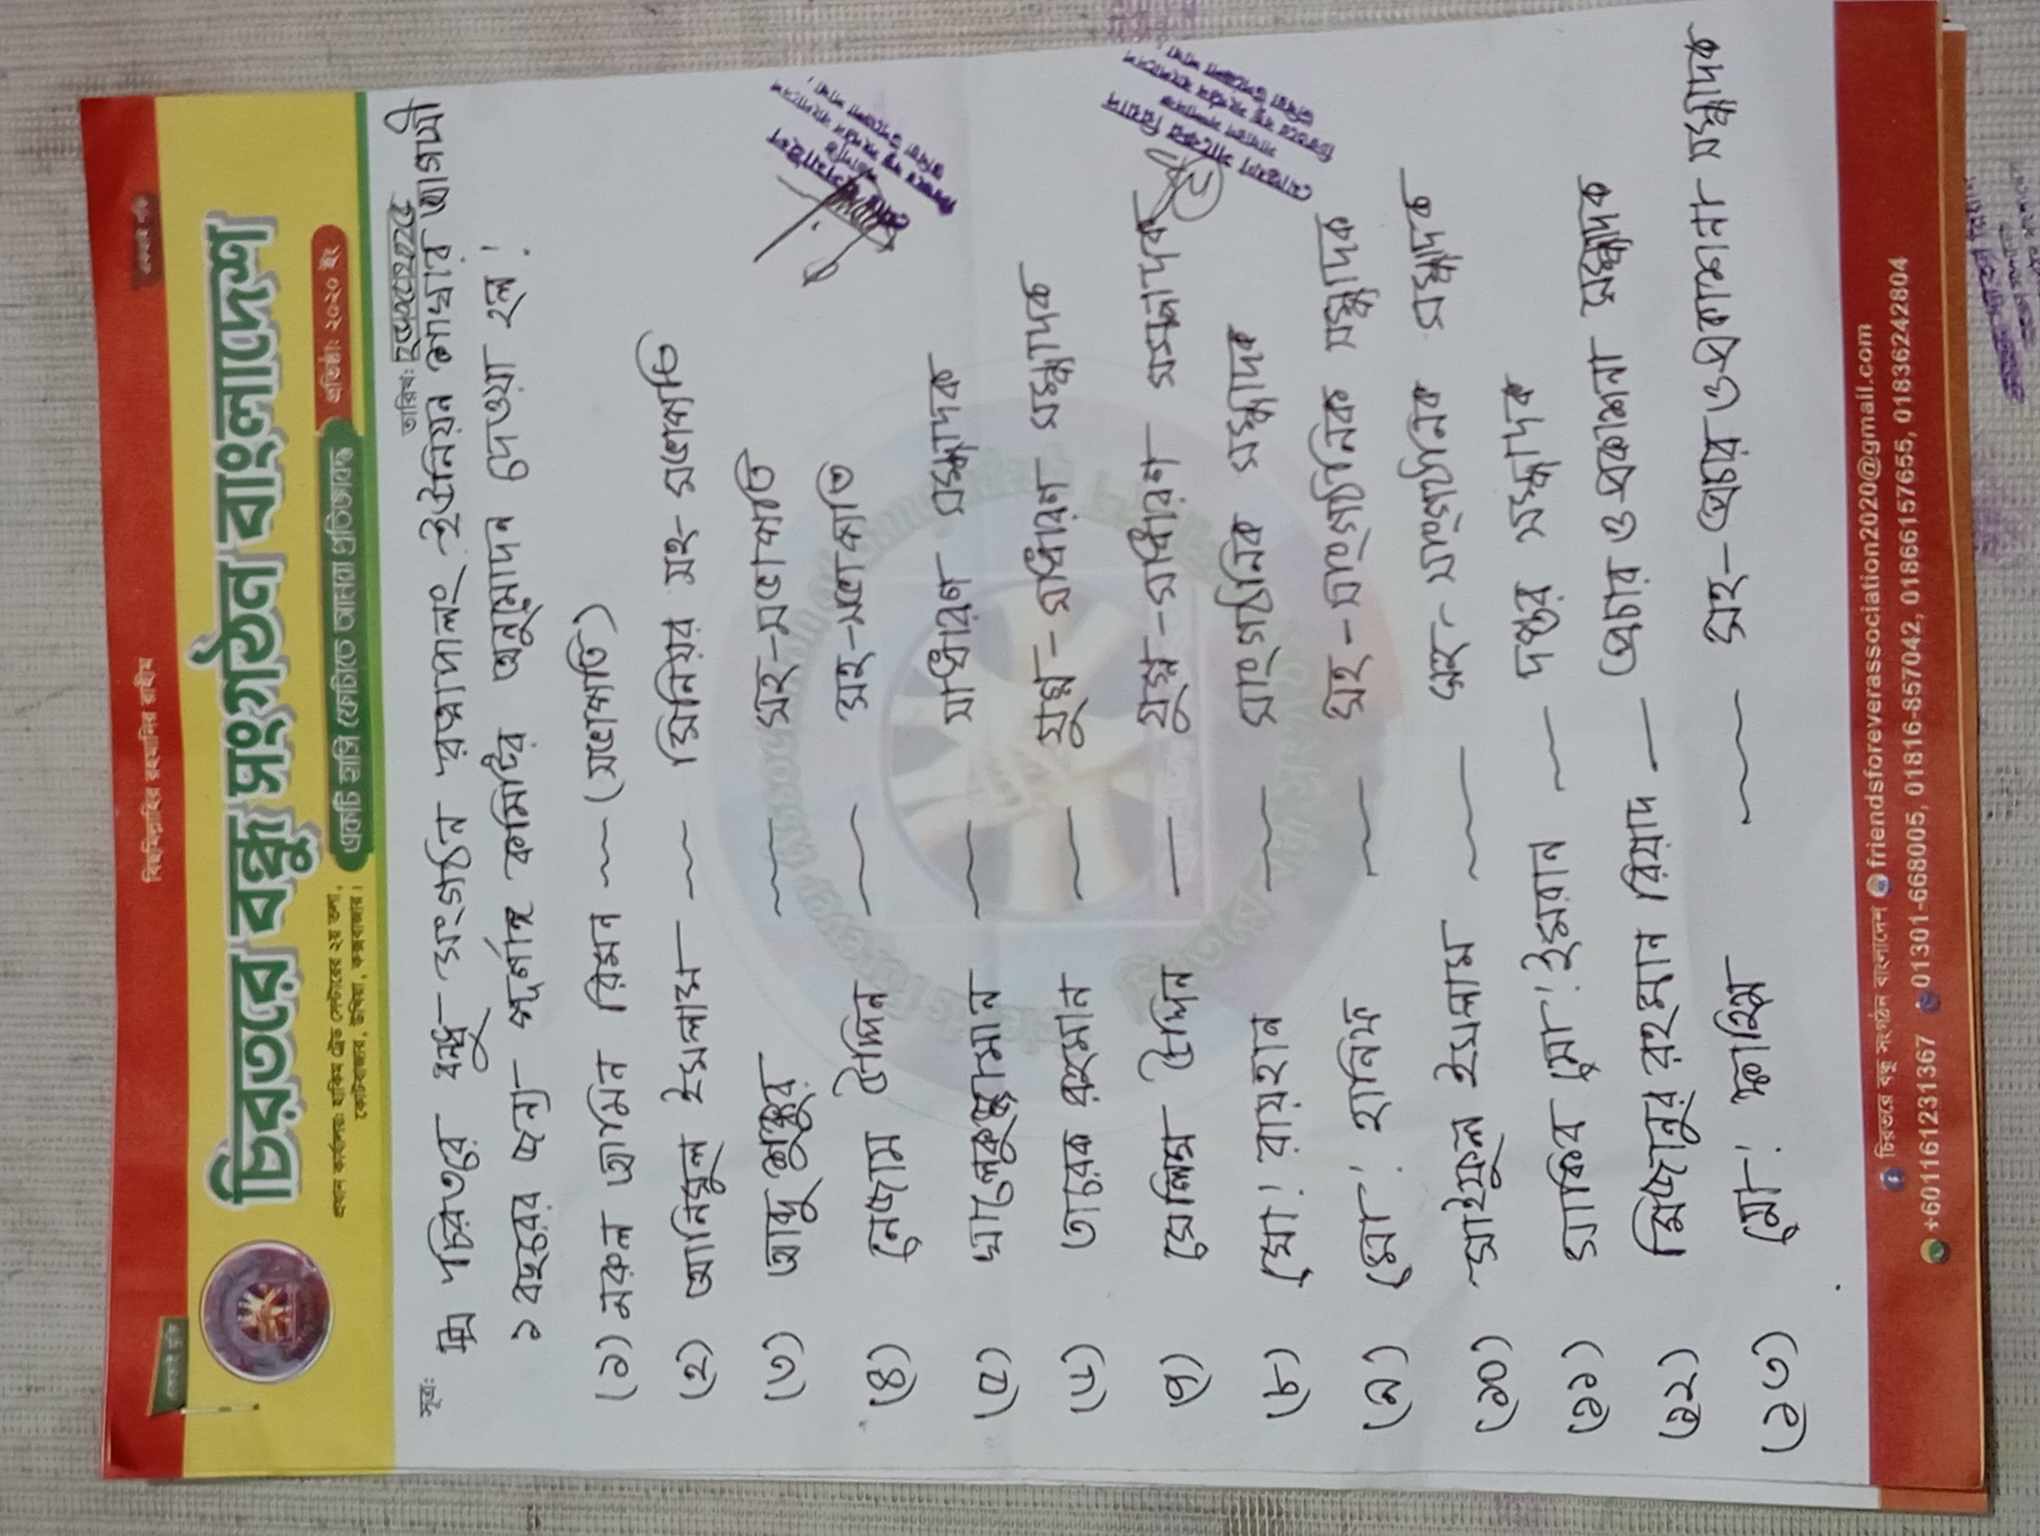 বিছমিল্লাহির রহমানির রাহীম
চিরতরে বন্ধু সংগঠন বাংলাদেশ
প্রতিষ্ঠা: ২০২০ ইং
একটি হাসি ফোটাতে আমরা প্রতিজ্ঞাবদ্ধ
সূত্র:
তারিখ:
চিরতরে বন্ধু সংগঠন রত্নাপালং ইউনিয়ন শাখার আগামী
১ বছরের জন্য পূর্ণাঙ্গ কমিটির অনুমোদন দেওয়া হল।
(১) নকল তামিন রিমন — (সভাপতি)
(২) আনিছুল ইসলাম — সিনিয়র সহ-সভাপতি
(৩) আবু শুক্কুর — সহ-সভাপতি
(৪) নেজাম উদ্দিন — সহ-সভাপতি
(৫) খালেকুজ্জামান — সাধারণ সম্পাদক
(৬) তারেক রহমান — যুগ্ম-সাধারণ সম্পাদক
৭) সেলিম উদ্দিন — যুগ্ম-সাধারণ সম্পাদক
(৮) মো: রায়হান — সাংগঠনিক সম্পাদক
(৯) মো: হানিফ — সহ-সাংগঠনিক সম্পাদক
(১০) সাইফুল ইসলাম — সহ-সাংগঠনিক সম্পাদক
(১১) সাকিব মো: ইমরান — দপ্তর সম্পাদক
(১২) মিজানুর রহমান রিয়াদ — প্রচার ও প্রকাশনা সম্পাদক
(১৩) মো: ফাহিম — সহ-প্রচার ও প্রকাশনা সম্পাদক
চিরতরে বন্ধু সংগঠন বাংলাদেশ friendsforeverassociation2020@gmail.com
+601161231367 01301-668005, 01816-857042, 01866157655, 01836242804